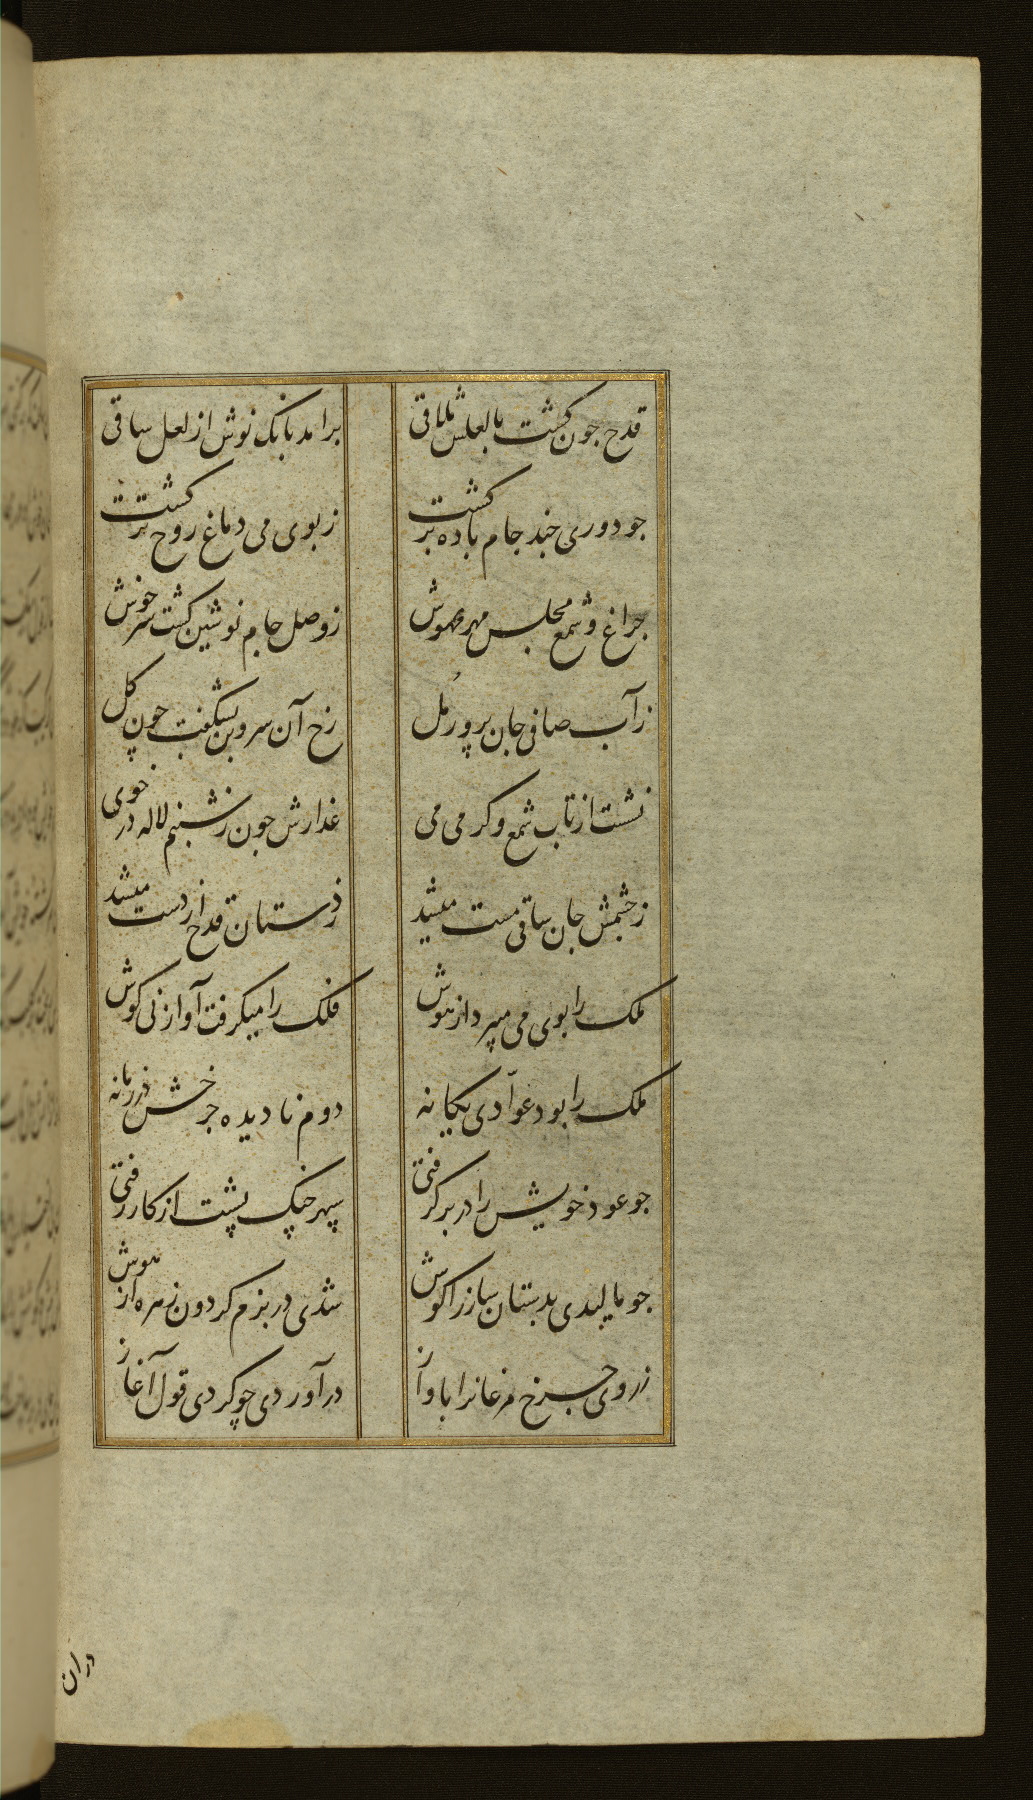 قدح جون کشت با لعلش تلاقی
برامد بانک نوش از لعل ساقی
جو دوری جند جام باده بر کشت
ز بوی می دماغ روح تر کشت
جراغ و شمع مجلس مهر مهوش
ز وصل جام نوشین کشت سرخوش
ز آب صافی جان پرور مل
رخ آن سروبن بشکفت چون کل
نشست از تاب شمع و کرمی می
عذارش جون ز شبنم لاله در خوی
ز جشمش جان ساقی مست میشد
ز دستان قدح از دست میشد
ملک را بوی می میبرد از هوش
فلک را میکرفت آواز نی کوش
ملک را بود عوادی یکانه
دوم نادیده جرخش در زمانه
جو عود خویش را در بر کرفتی
سپهر جنک پشت از کار رفتی
جو مالیدی بدستان ساز را کوش
شدی در بزم کردون زهره از هوش
ز روی جرخ مرغانرا باواز
در آوردی چو کردی قول آغاز
در ان